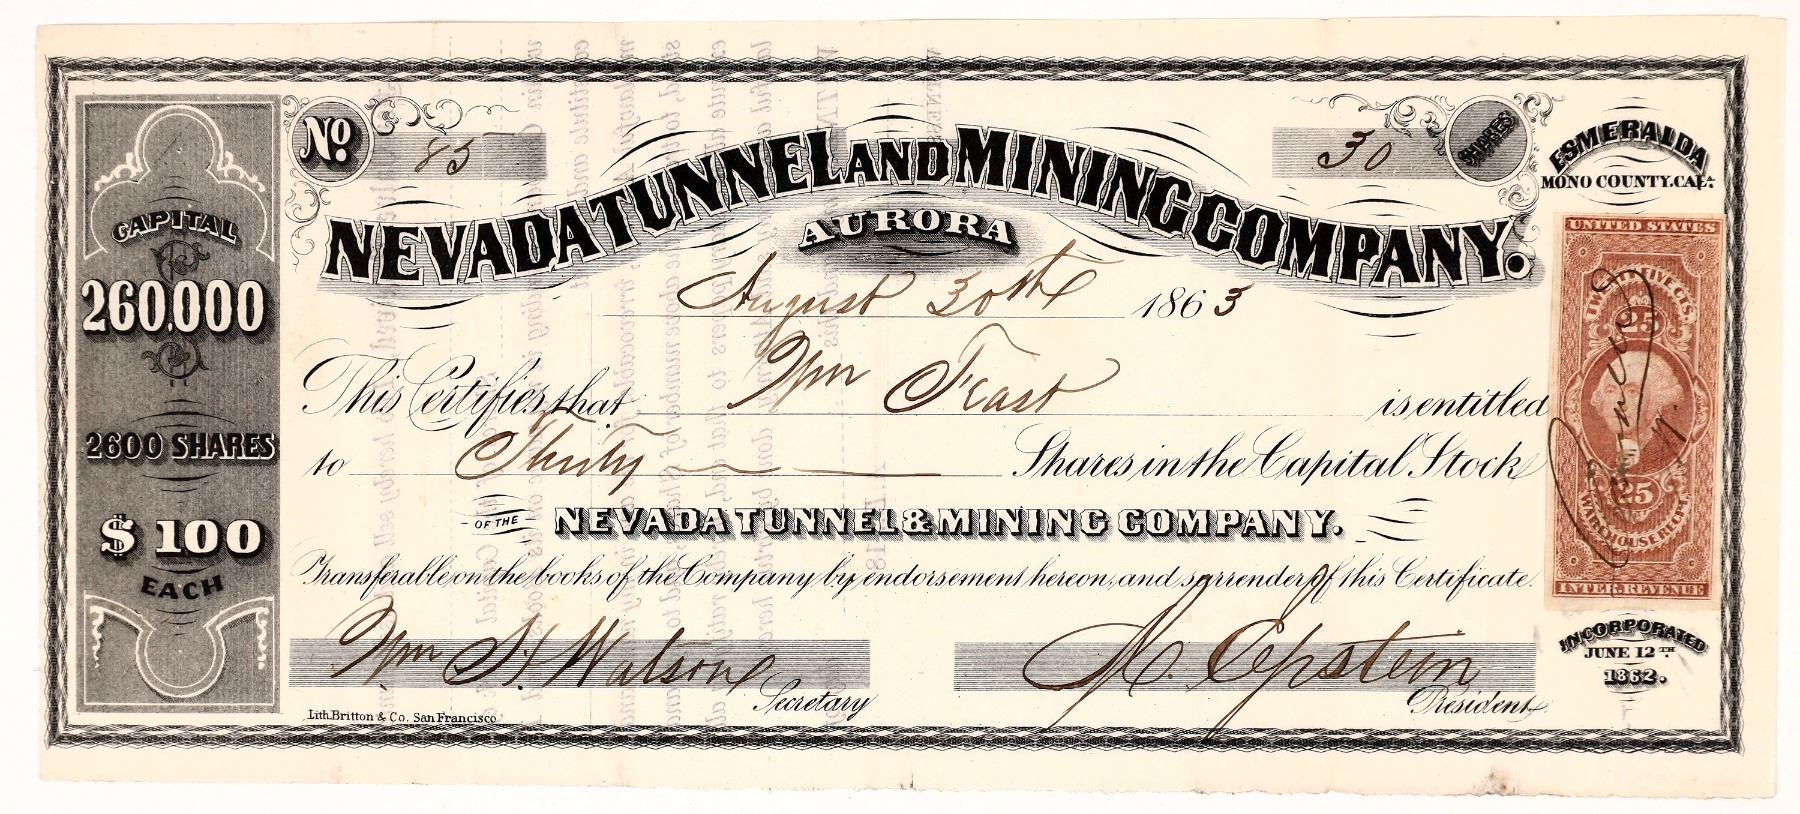 CAPITAL
260,000
2600 SHARES
$100
EACH
No. 85
NEVADA TUNNEL AND MINING COMPANY.
AURORA
30 SHARES
ESMERALDA
MONO COUNTY. CALA.
August 30th 1863
This Certifies that Wm Feast is entitled
to Thirty Shares in the Capital Stock
OF THE NEVADA TUNNEL & MINING COMPANY.
Transferable on the books of the Company by endorsement hereon, and surrender of this Certificate.
Wm H Watson
Secretary
A. Epstein
President
Lith. Britton & Co. San Francisco
UNITED STATES
TWENTY FIVE CTS.
25
25
WAREHOUSE RECPT.
INTER. REVENUE
INCORPORATED
JUNE 12TH
1862.